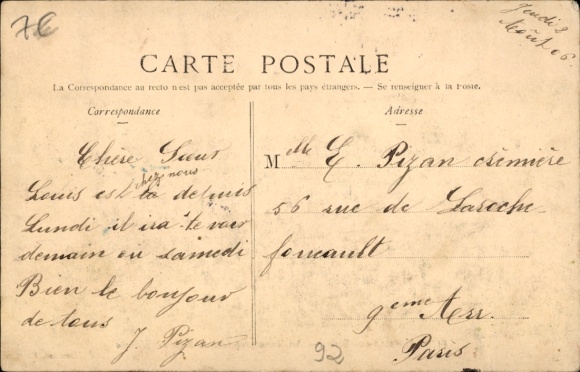 7E
Jeudi 2
Août 06
CARTE POSTALE
La Correspondance au recto n'est pas acceptée par tous les pays étrangers. — Se renseigner à la Poste.
Correspondance
Adresse
Chère Sœur
chez nous
Louis est la depuis
Lundi il ira te voir
demain ou samedi
Bien le bonjour
de tous
J. Pizan
Melle E. Pizan crèmière
56 rue de Laroche
foucault
9eme Arr.
Paris
92